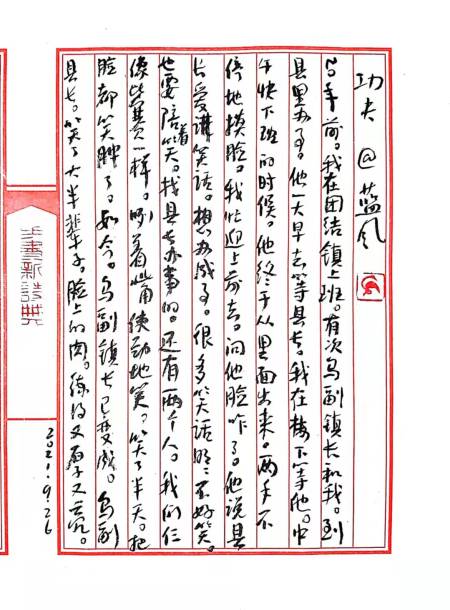 功夫 @ 蓝风
年前。我在团结镇上班。有次乌副镇长和我。到
县里办事。他一大早去等县长。我在楼下等他。中
午快下班的时候。他终于从里面出来。两手不
停地摸脸。我忙迎上前去。问他脸咋了。他说县
长爱讲笑话。想办成事。很多笑话明〻不好笑。
也要陪着笑。找县长办事的。还有两个人。我们仨
像比赛一样。咧着嘴角使劲地笑。笑了半天。把
脸都笑肿了。如今。乌副镇长已变成。乌副
县长。笑了大半辈子。脸上的肉。练得又厚又沉。
新詩典
2021.9.26